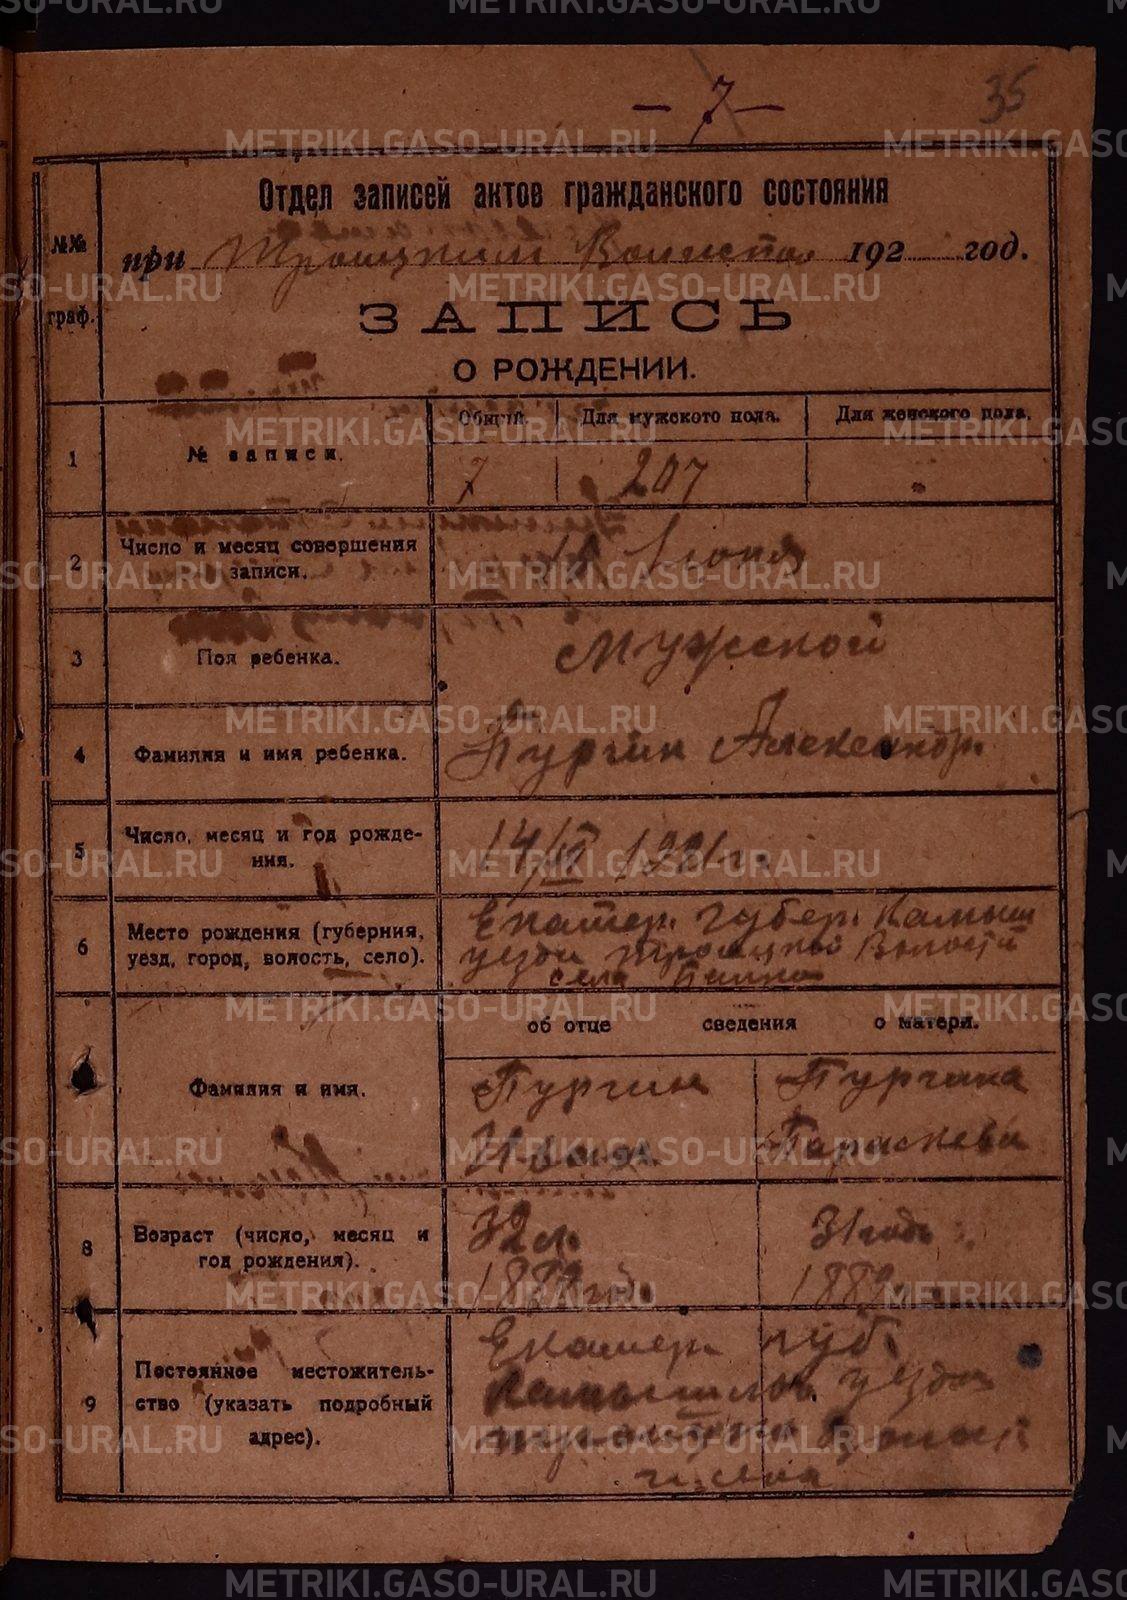 35
— 7 —
Отдел записей актов гражданского состояния
№№ граф.
при Троицким 192 год.
ЗАПИСЬ
О РОЖДЕНИИ.
Общий. Для мужского пола. Для женского пола.
1 № записи. 7 207
2 Число и месяц совершения записи. Июня
3 Пол ребенка. Мужской
4 Фамилия и имя ребенка. Пургин Александр.
5 Число, месяц и год рождения. 14/VI 1921 г.
6 Место рождения (губерния, уезд, город, волость, село). Екатер. губер. Камыш
уезда Троицкой Волости
села
об отце сведения о матери.
Фамилия и имя. Пургин Пургина
Иван. Параскева
8 Возраст (число, месяц и год рождения). 32 л. 31 годъ
1889 1889
9 Постоянное местожительство (указать подробный адрес). Екатер. губ.
Камышлов. уезда
METRIKI.GASO-URAL.RU